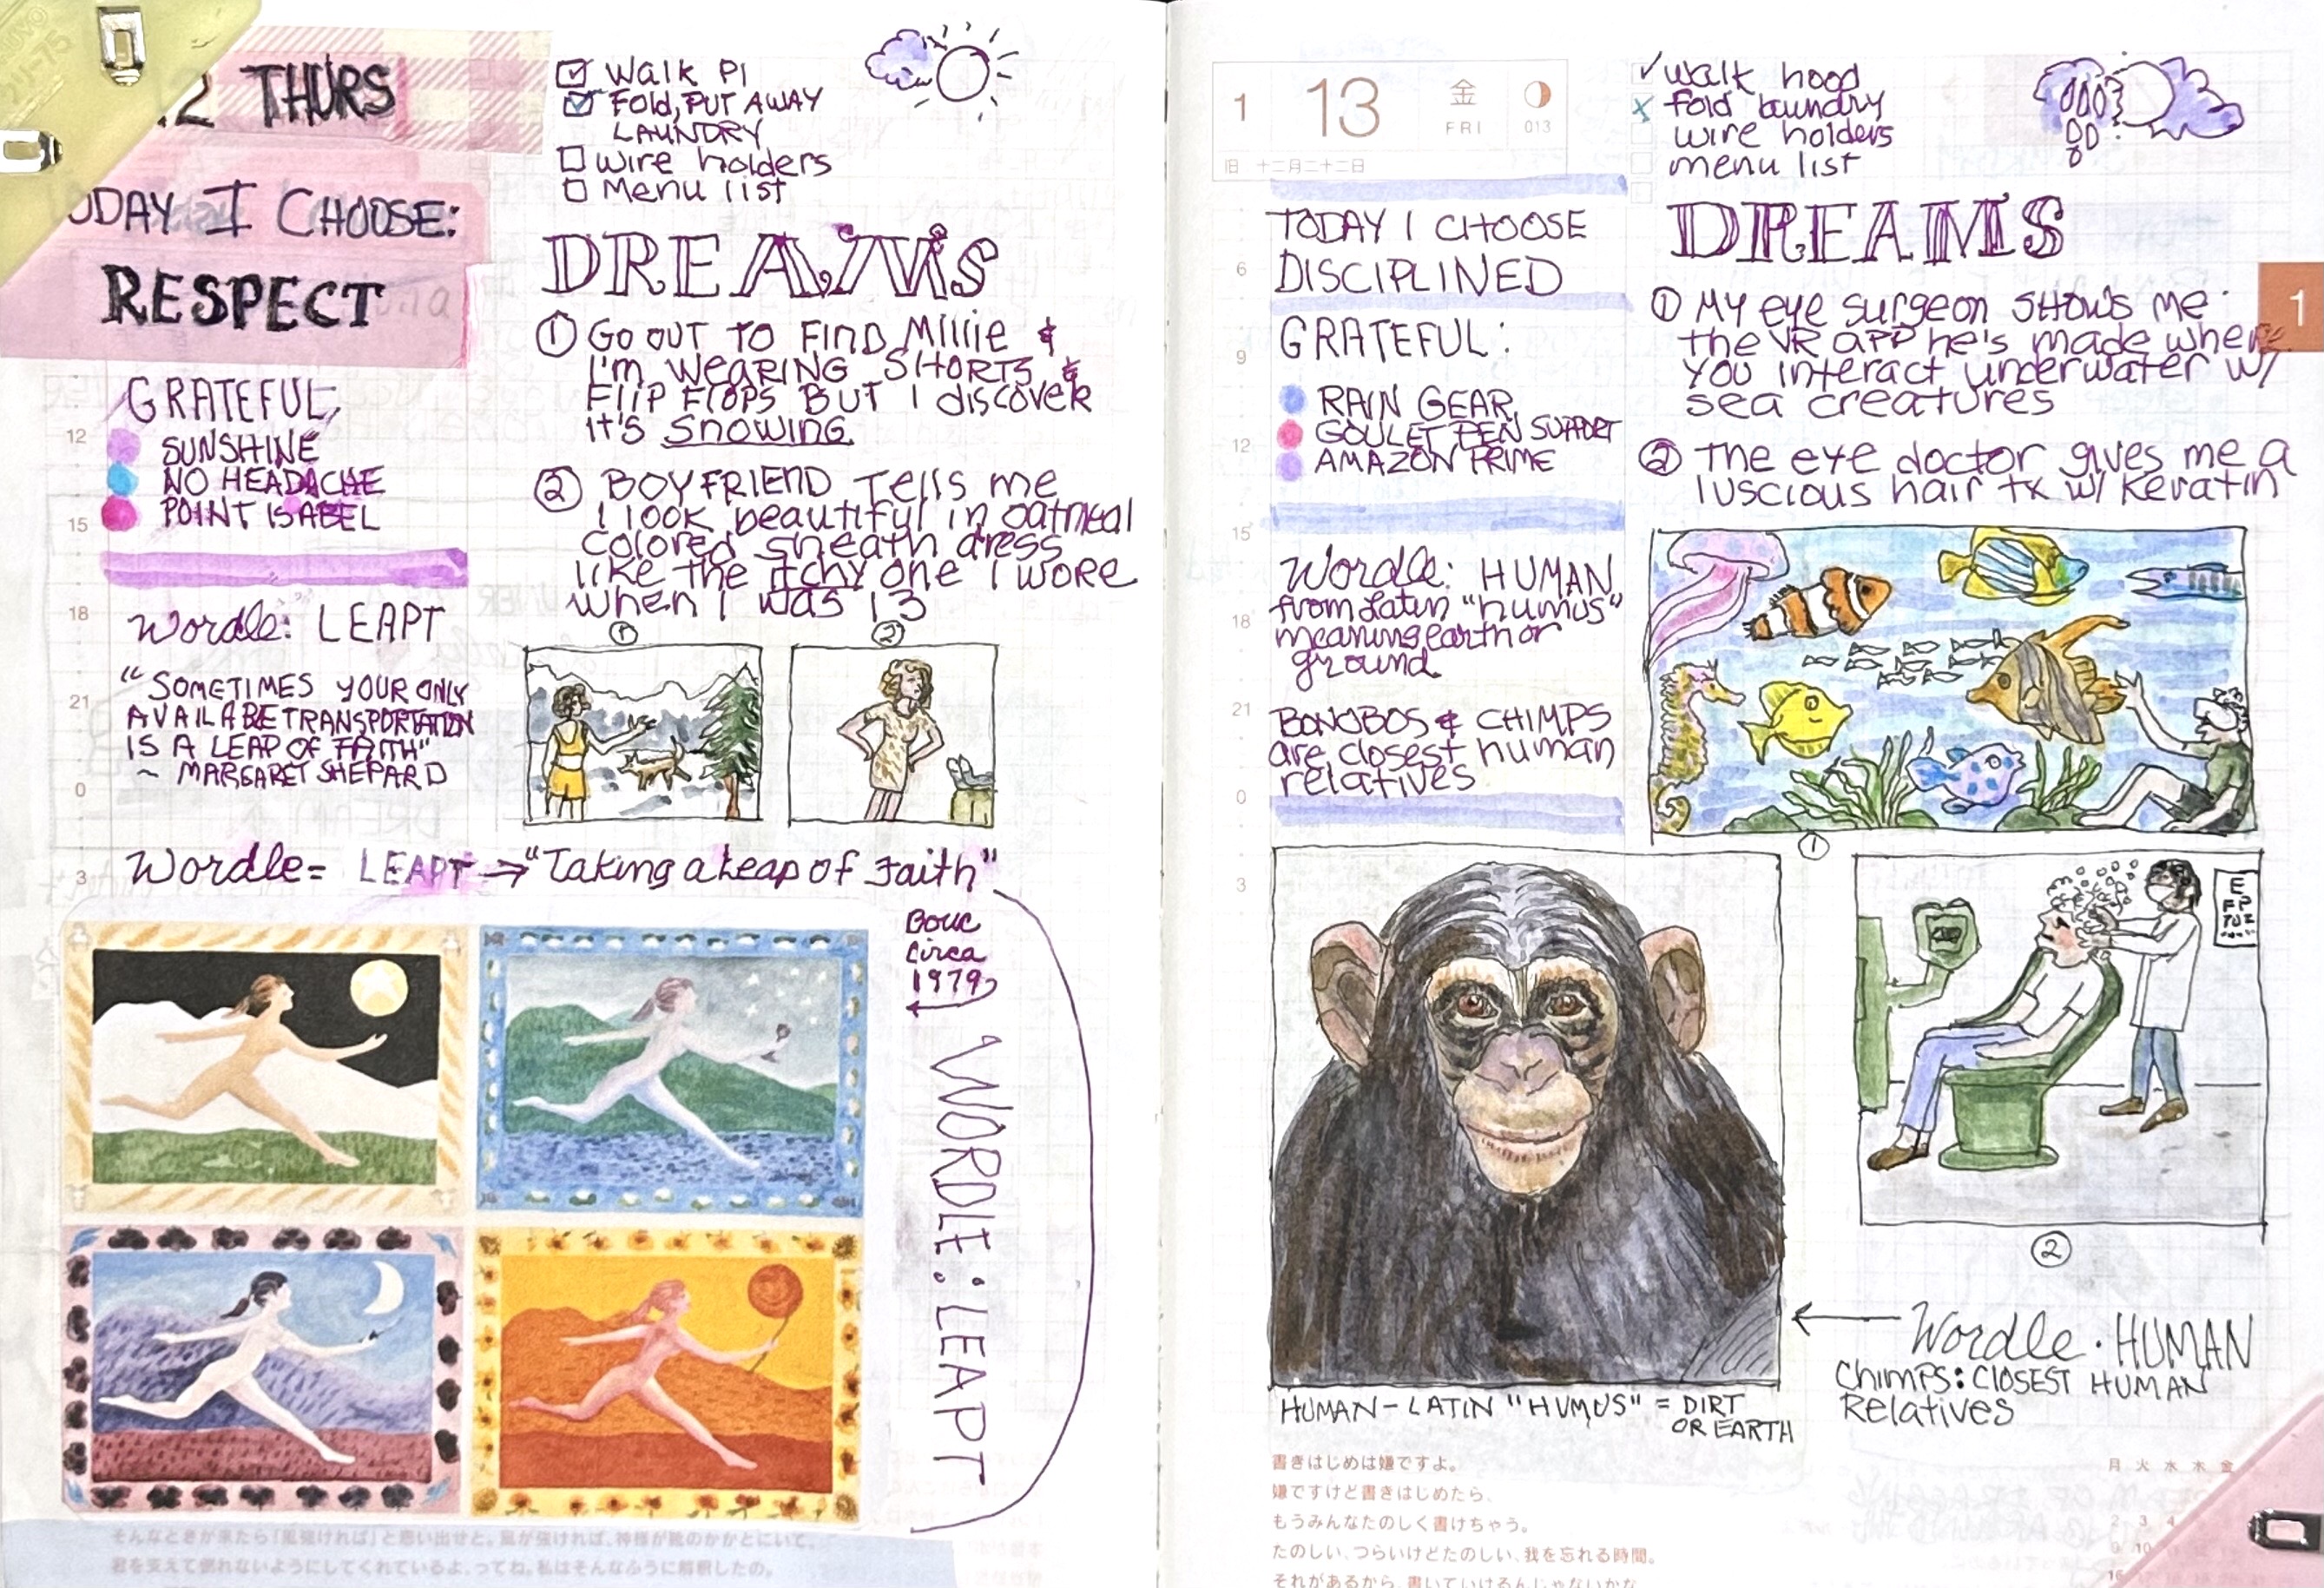 12 THURS
TODAY I CHOOSE:
RESPECT
GRATEFUL,
SUNSHINE
NO HEADACHE
POINT ISABEL
Wordle: LEAPT
"SOMETIMES YOUR ONLY
AVAILABLE TRANSPORTATION
IS A LEAP OF FAITH"
~ MARGARET SHEPARD
12
15
18
21
0
3
Walk PI
FOLD, PUT AWAY
LAUNDRY
Wire holders
Menu list
DREAMS
① GO OUT TO FIND Millie &
I'm WEARING SHORTS &
FLIP FLOPS BUT I discover
it's SNOWING
② BOYFRIEND Tells me
I look beautiful in oatmeal
colored sheath dress
like the itchy one I wore
when I was 13
①
②
Wordle = LEAPT → "Taking a Leap of Faith"
Bouc
circa
1979
WORDLE: LEAPT
そんなときが来たら「風強ければ」と思い出せと。風が強ければ、神様が靴のかかとにいて、
君を支えて倒れないようにしてくれているよ、ってね。私はそんなふうに解釈したの。
1 13 金
FRI 013
旧 十二月二十二日
walk hood
fold laundry
wire holders
menu list
TODAY I CHOOSE
DISCIPLINED
GRATEFUL:
RAIN GEAR
GOULET PEN SUPPORT
AMAZON PRIME
Wordle: HUMAN
from Latin "humus"
meaning earth or
ground
BONOBOS & CHIMPS
are closest human
relatives
6
9
12
15
18
21
0
3
DREAMS
① My eye surgeon SHOWS me
the VR APP he's made where
you interact underwater w/
sea creatures
② the eye doctor gives me a
luscious hair tx w/ keratin
1
①
E
②
Wordle • HUMAN
Chimps: CLOSEST HUMAN
Relatives
HUMAN - LATIN "HUMUS" = DIRT
OR EARTH
書きはじめは嫌ですよ。
嫌ですけど書きはじめたら、
もうみんなたのしく書けちゃう。
たのしい、つらいけどたのしい、我を忘れる時間。
それがあるから、書いていけるんじゃないかな
月 火 水 木 金
2 3 4
9 10
16